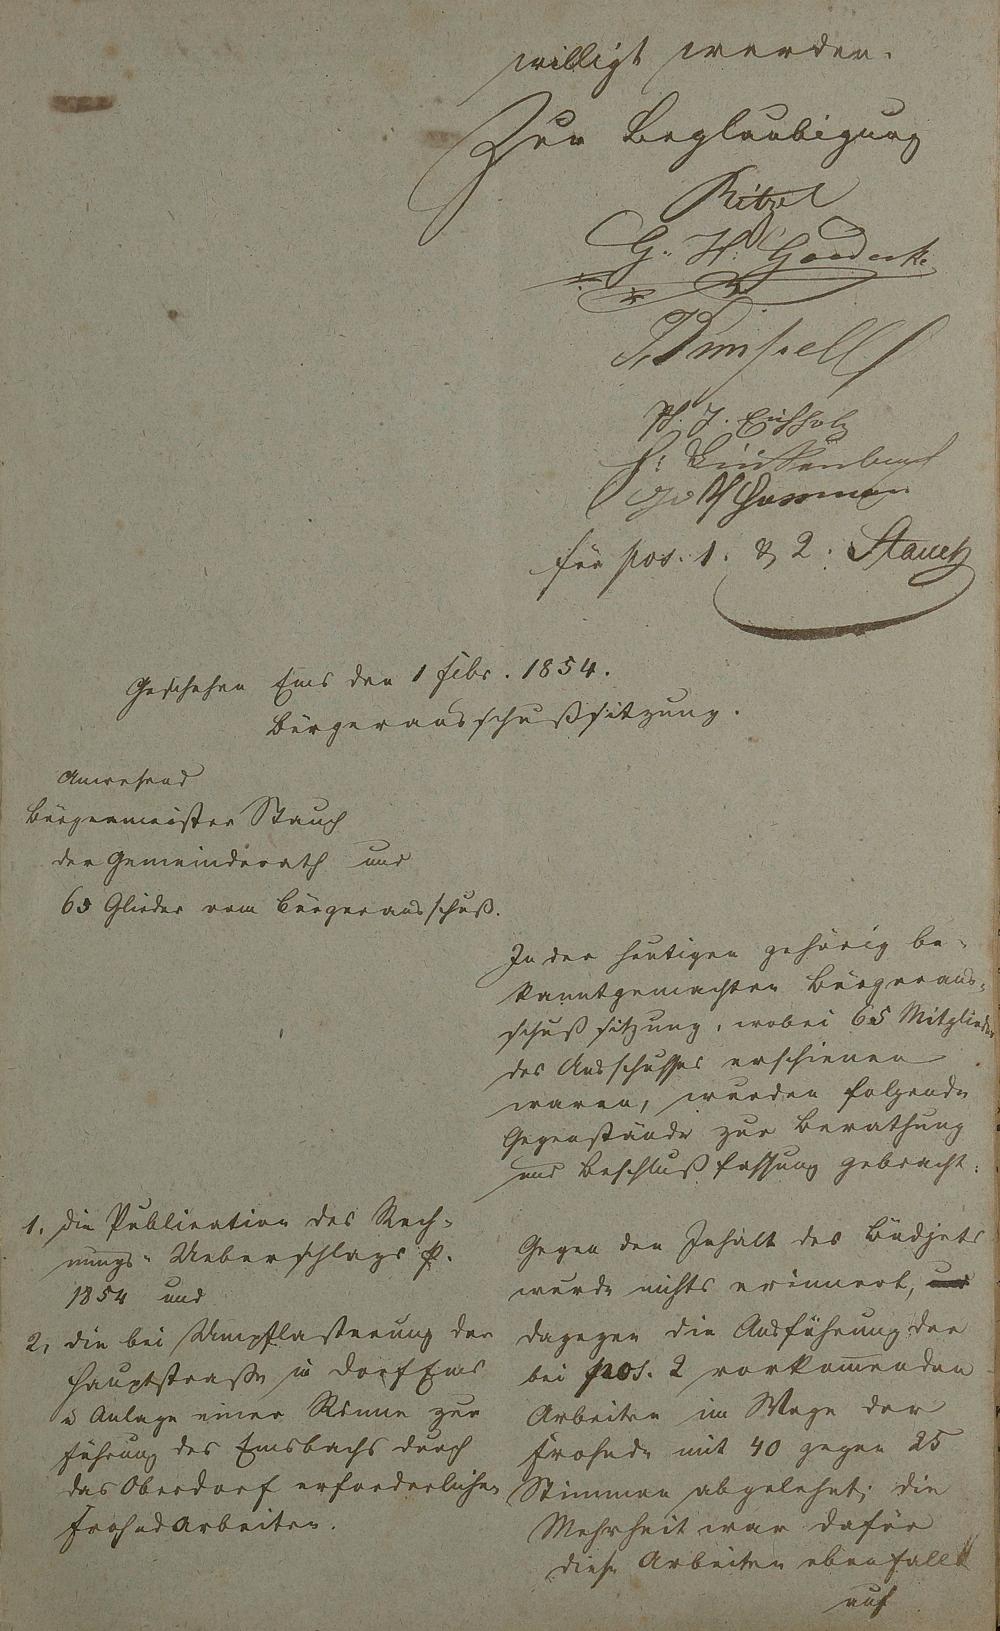 willigt werden.
Zur Beglaubigung
Ritzel
G. H. Goedecke
Ph. J. Eichholz
für pos. 1. & 2. Stauch
Geschehen Ems den 1 febr. 1854.
Bürgerausschußsitzung.
Anwesend
Bürgermeister Stauch
der Gemeinderath und
65 Glieder vom Bürgerausschuß.
In der heutigen gehörig be-
kanntgemachten Bürgeraus-
schußsitzung, wobei 65 Mitglieder
des Ausschusses erschienen
waren, wurden folgende
Gegenstände zur Berathung
und Beschlußfassung gebracht:
1. die Publication des Rech-
nungs-Ueberschlags p.
1854 und
2, die bei Umpflasterung der
Hauptstraße in Dorf Ems
u Anlage einer Rinne zur
Führung des Emsbachs durch
das Oberdorf erforderlichen
Frohndarbeiten.
Gegen den Inhalt des Büdjets
wurde nichts erinnert, und
dagegen die Ausführung der
bei pos. 2 vorkomenden
Arbeiten im Wege der
Frohnde mit 40 gegen 25
Stimmen abgelehnt; die
Mehrheit war dafür
diese Arbeiten ebenfalls
auf